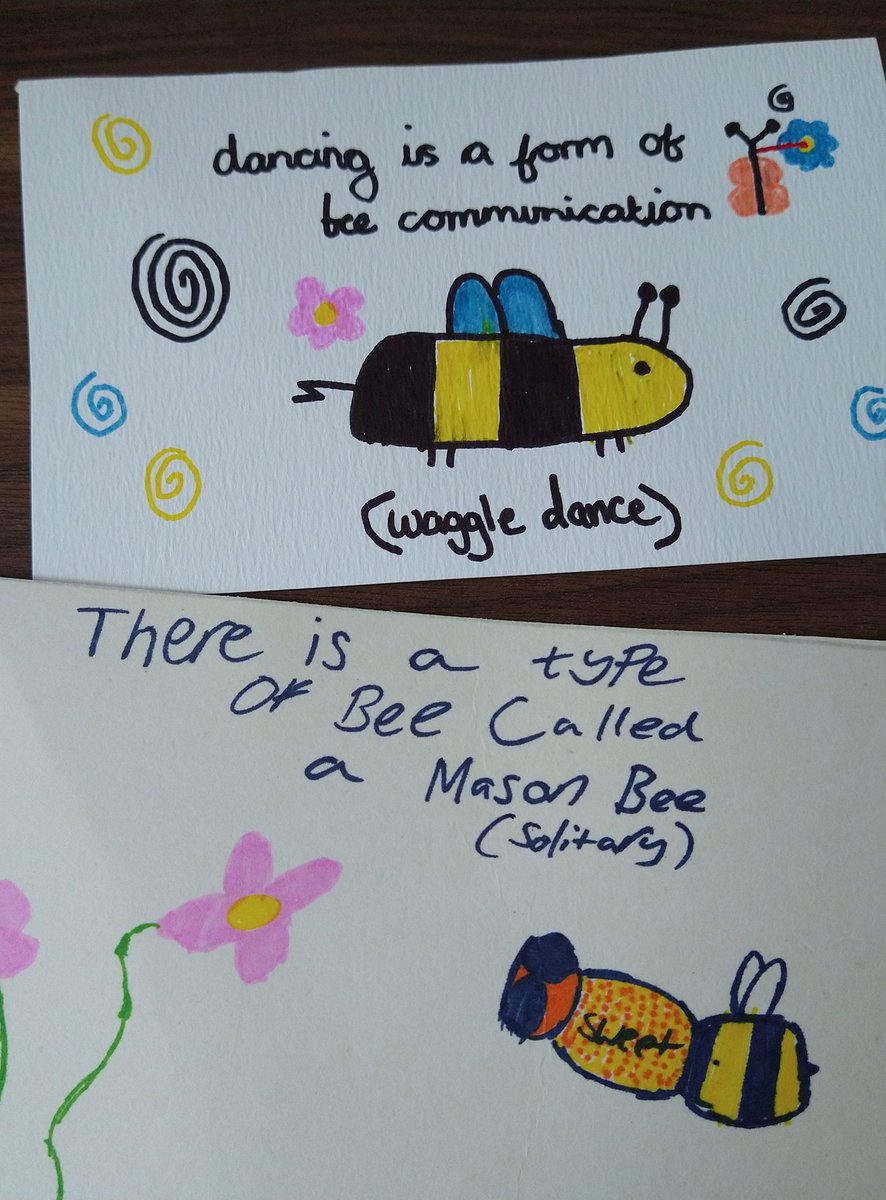 dancing is a form of
bee communication
(waggle dance)
There is a type
Of Bee Called
a Mason Bee
(Solitary)
Sweet